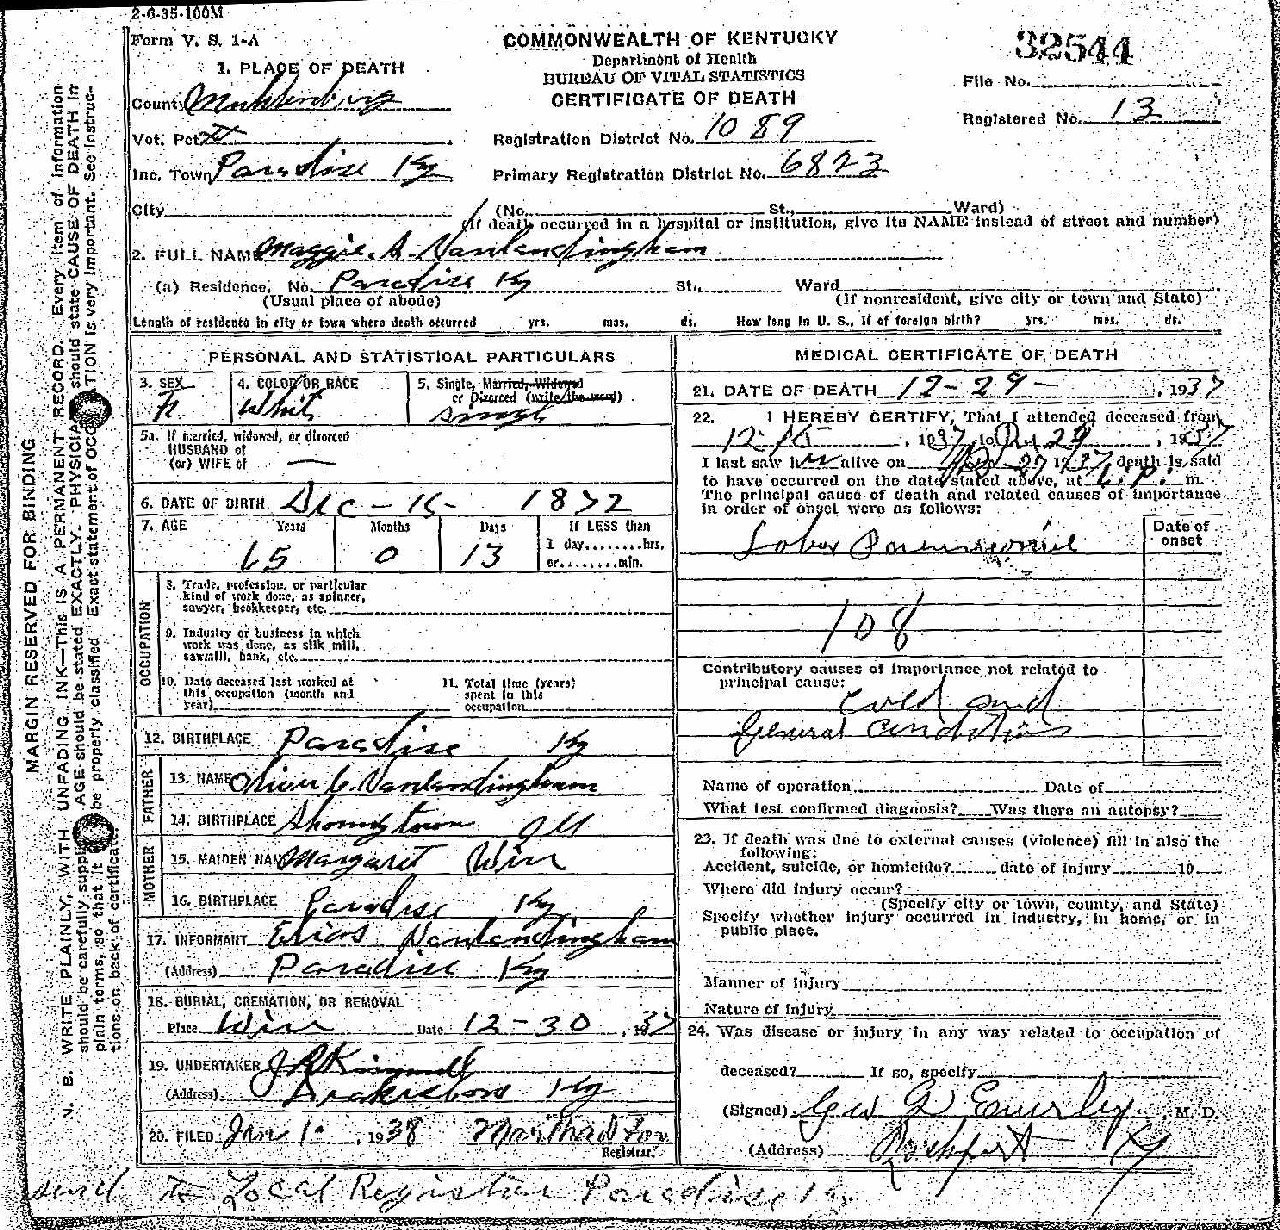 2-6-35-100M
Form V. S. 1-A
COMMONWEALTH OF KENTUCKY
Department of Health
BUREAU OF VITAL STATISTICS
CERTIFICATE OF DEATH
32544
File No.
Registered No. 13
1. PLACE OF DEATH
County Muhlenberg
Vot. Pct.
Inc. Town Paradise Ky
Registration District No. 1089
Primary Registration District No. 6823
City (No. St., Ward)
(If death occurred in a hospital or institution, give its NAME instead of street and number)
2. FULL NAME Maggie. A. Vanlandingham
(a) Residence, No. Paradise Ky St., Ward
(Usual place of abode) (If nonresident, give city or town and State)
Length of residence in city or town where death occurred yrs. mos. ds. How long in U. S., if of foreign birth? yrs. mos. ds.
PERSONAL AND STATISTICAL PARTICULARS
3. SEX 4. COLOR OR RACE 5. Single, Married, Widowed
or Divorced (write the word)
F. Whit Singl
5a. If married, widowed, or divorced
HUSBAND of
(or) WIFE of —
6. DATE OF BIRTH Dec - 16 - 1872
7. AGE Years Months Days If LESS than
1 day........hrs.
or........min.
65 0 13
OCCUPATION
8. Trade, profession, or particular
kind of work done, as spinner,
sawyer, bookkeeper, etc.
9. Industry or business in which
work was done, as silk mill,
sawmill, bank, etc.
10. Date deceased last worked at
this occupation (month and
year)
11. Total time (years)
spent in this
occupation
12. BIRTHPLACE Paradise Ky
FATHER
13. NAME Oliver C. Vanlandingham
14. BIRTHPLACE Shawneytown Ill
MOTHER
15. MAIDEN NAME Margaret Wirr
16. BIRTHPLACE Paradise Ky
17. INFORMANT Elias Vanlandingham
(Address) Paradise Ky
18. BURIAL, CREMATION, OR REMOVAL
Place Wirr Date 12-30, 1937
19. UNDERTAKER
(Address) Drakesboro Ky
20. FILED Jan 1, 1938 Martha
Registrar.
MEDICAL CERTIFICATE OF DEATH
21. DATE OF DEATH 12-29-, 1937
22. I HEREBY CERTIFY, That I attended deceased from
, 1937, to Dec 29, 1937
I last saw her alive on 1937, death is said
to have occurred on the date stated above, at m.
The principal cause of death and related causes of importance
in order of onset were as follows:
Date of
onset
Lobar
108
Contributory causes of importance not related to
principal cause:
Cold and
General Conditions
Name of operation Date of
What test confirmed diagnosis? Was there an autopsy?
23. If death was due to external causes (violence) fill in also the
following:
Accident, suicide, or homicide? date of injury 19
Where did injury occur?
(Specify city or town, county, and State)
Specify whether injury occurred in industry, in home, or in
public place.
Manner of injury
Nature of injury
24. Was disease or injury in any way related to occupation of
deceased? If so, specify
(Signed) M. D.
(Address) Rockport Ky
send to Local Registrar Paradise Ky
MARGIN RESERVED FOR BINDING
N. B. WRITE PLAINLY, WITH UNFADING INK—This is A PERMANENT RECORD. Every item of information
should be carefully supp AGE should be stated EXACTLY. PHYSICIA should state CAUSE OF DEATH in
plain terms, so that it be properly classified. Exact statement of OCC TION is very important. See instruc-
tions on back of certificate.